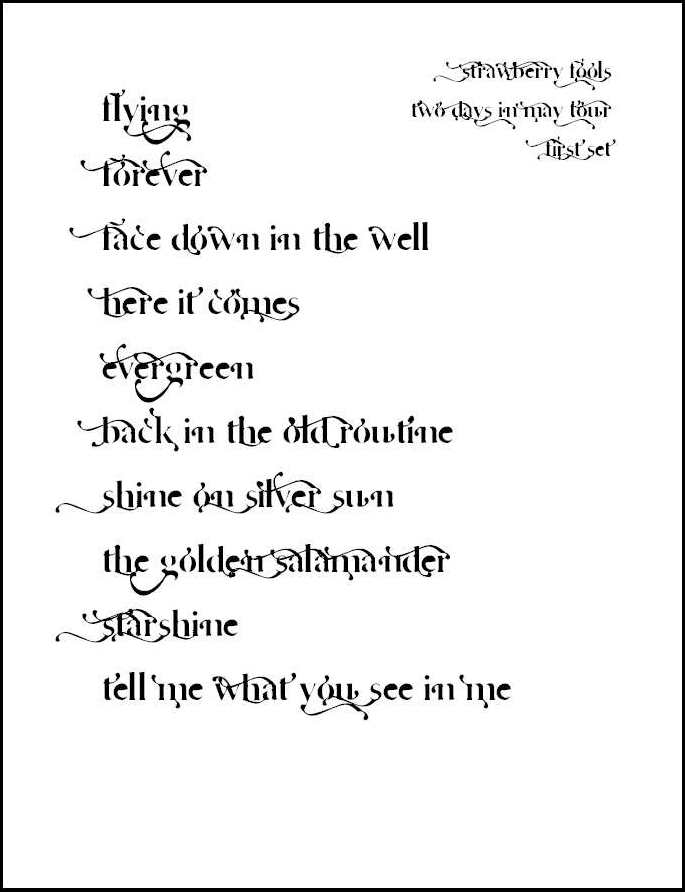 strawberry fools
two days in may tour
first set
flying
forever
face down in the well
here it comes
evergreen
back in the old routine
shine on silver sun
the golden salamander
starshine
tell me what you see in me